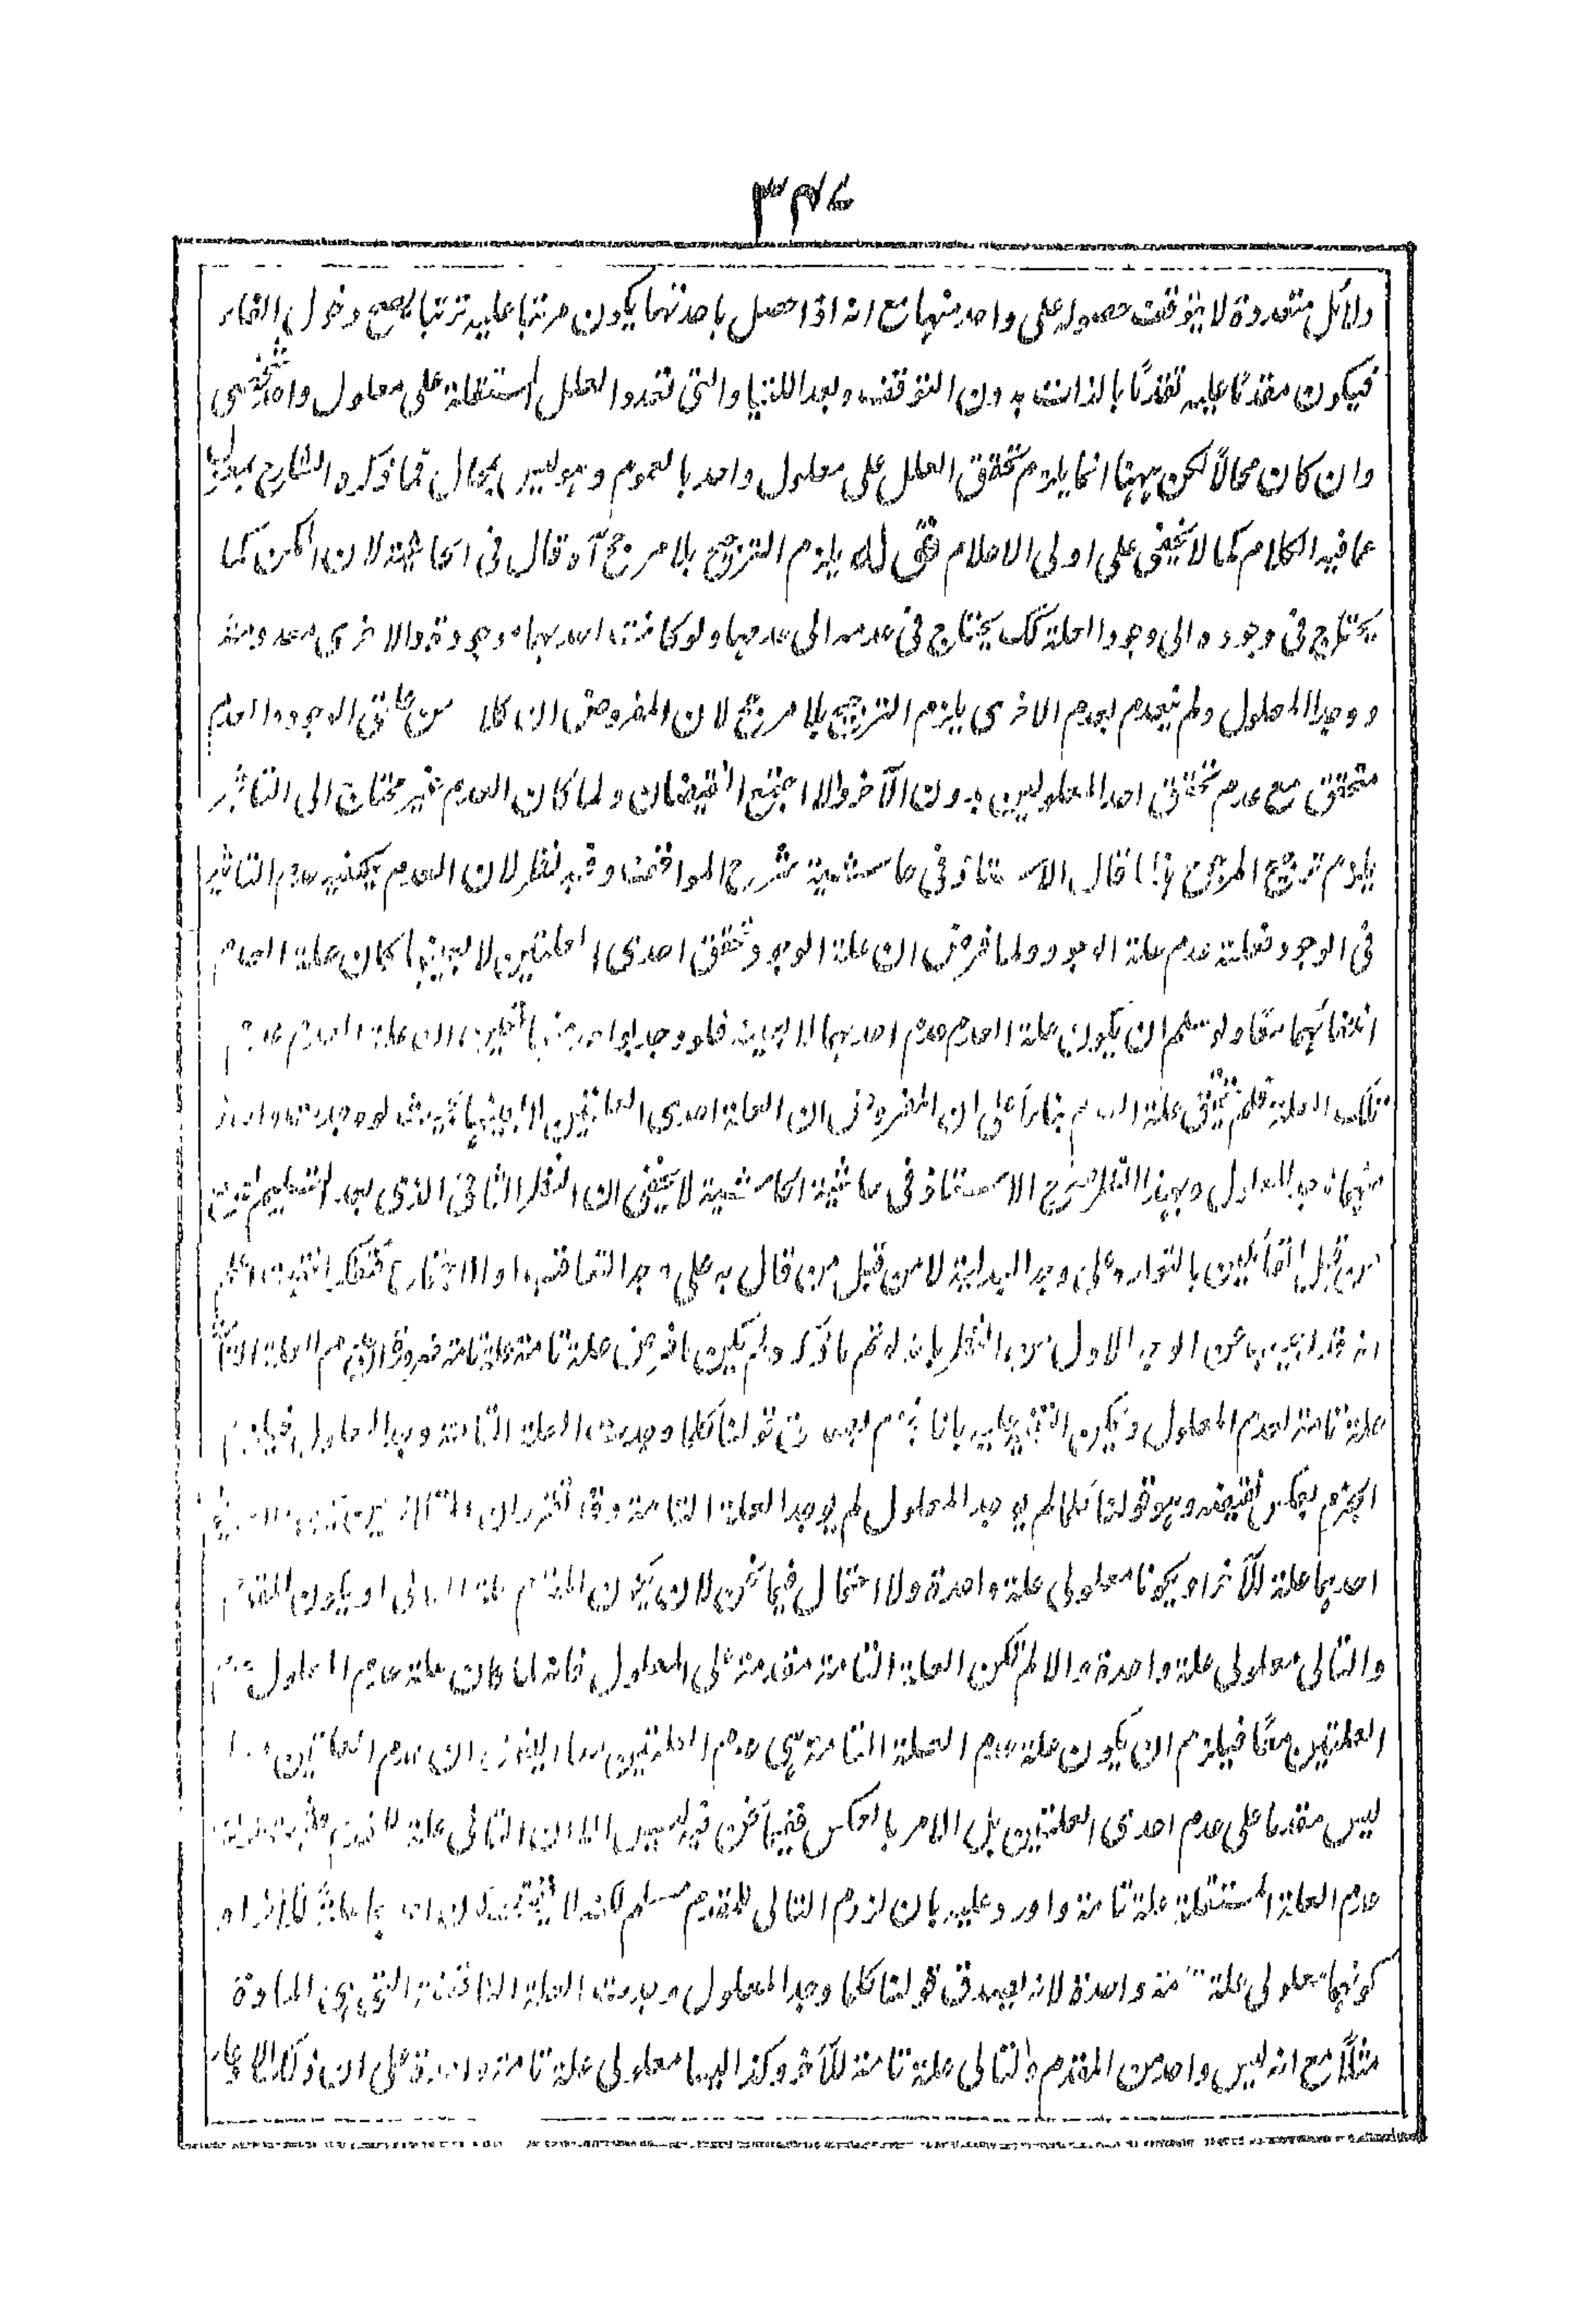 ٣٤٧
دلائل متعددة لا يتوقف حصوله على واحد منها مع انه اذا حصل باحدتها يكون مرتبا عليه ترتبا يصح دخول الفاء
فيكون مقدمًا عليه تقدمًا بالذات بدون التوقف وبعد اللتيا والتى تعدد العلل المستقلة على معلول واحد شخصى
وان كان محالًا لكن ههنا انما يلزم تحقق العلل على معلول واحد بالعموم وهو ليس بمحال فما ذكره الشارح
عما فيه الكلام كما لا يخفى على اولى الاحلام قوله يلزم الترجيح بلا مرجح آه قال فى الحاشية لان الممكن كما
يحتاج فى وجوده الى وجود العلة كك يحتاج فى عدمه الى عدمها ولو كانت احدهما موجودة والاخرى معدومة
ووجد المعلول ولم ينعدم بعدم الاخرى يلزم الترجيح بلا مرجح لان المفروض ان كلا من علتى الوجود والعدم
متحقق مع عدم تحقق احد المعلولين بدون الآخر والا اجتمع النقيضان ولما كان العدم غير محتاج الى التاثير
يلزم ترجيح المرجوح قال الاستاذ فى حاشية شرح المواقف وفيه نظر لان العدم يكفيه عدم التاثير
فى الوجود فعلته عدم علة الوجود ولما فرض ان علة الوجود تحقق احدى العلتين لا بعينها كان علة العدم
انتفائهما معًا ولو سلم ان يكون علة العدم عدم احدهما لا بعينه فلو وجد بواحد منهما لان علة العدم عدم
تلك العلة فلم يتحقق علة العدم بناءً على ان المفروض ان العلة احدى العلتين لا بعينها بحيث لو وجدت واحدة
منهما وجد المعلول وبهذا النظر صرح الاستاذ فى حاشية الحاشية لا يخفى ان النظر الثانى الذى بعد التسليم
من قبل القائلين بالتوارد على وجه البدلية لا من قبل من قال به على وجه التعاقب او الاجتماع فتفكر
انه قد اجيب عن الوجه الاول من النظر بانه لو تم ما ذكر ولم يكن ما فرض علة تامة علة تامة ضرورة ان عدم العلة التامة
علة تامة لعدم المعلول ويمكن التنبيه عليه بانا نجزم بصدق قولنا كلما وجدت العلة التامة وجد المعلول فيلزم
الجزم بعكس نقيضه وهو قولنا كلما لم يوجد المعلول لم يوجد العلة التامة وقد تقرر ان
احدهما علة للآخر او يكونا معلولى علة واحدة ولا احتمال فيما نحن لان يكون المقدم علة للتالى او يكون المقدم
والتالى معلولى علة واحدة والا لم تكن العلة التامة مقدمة على المعلول فانه لما كان علة عدم المعلول عدم
العلتين معًا فيلزم ان يكون علة عدم العلة التامة هى عدم العلتين معا ايضا ان عدم العلتين معا
ليس مقدما على عدم احدى العلتين بل الامر بالعكس ففيما نحن فيه ليس الا ان التالى علة للمقدم
عدم العلة المستقلة علة تامة واورد عليه بان لزوم التالى للمقدم مسلم لكنه لا يقتضى كون احدهما علة للآخر او
كونهما معلولى علة تامة واحدة لانه يصدق قولنا كلما وجد المعلول وجدت العلة الناقصة التى هى المادة
مثلًا مع انه ليس واحد من المقدم والتالى علة تامة للآخر وكذا ليسا معلولى علة تامة واحدة على ان ذلك